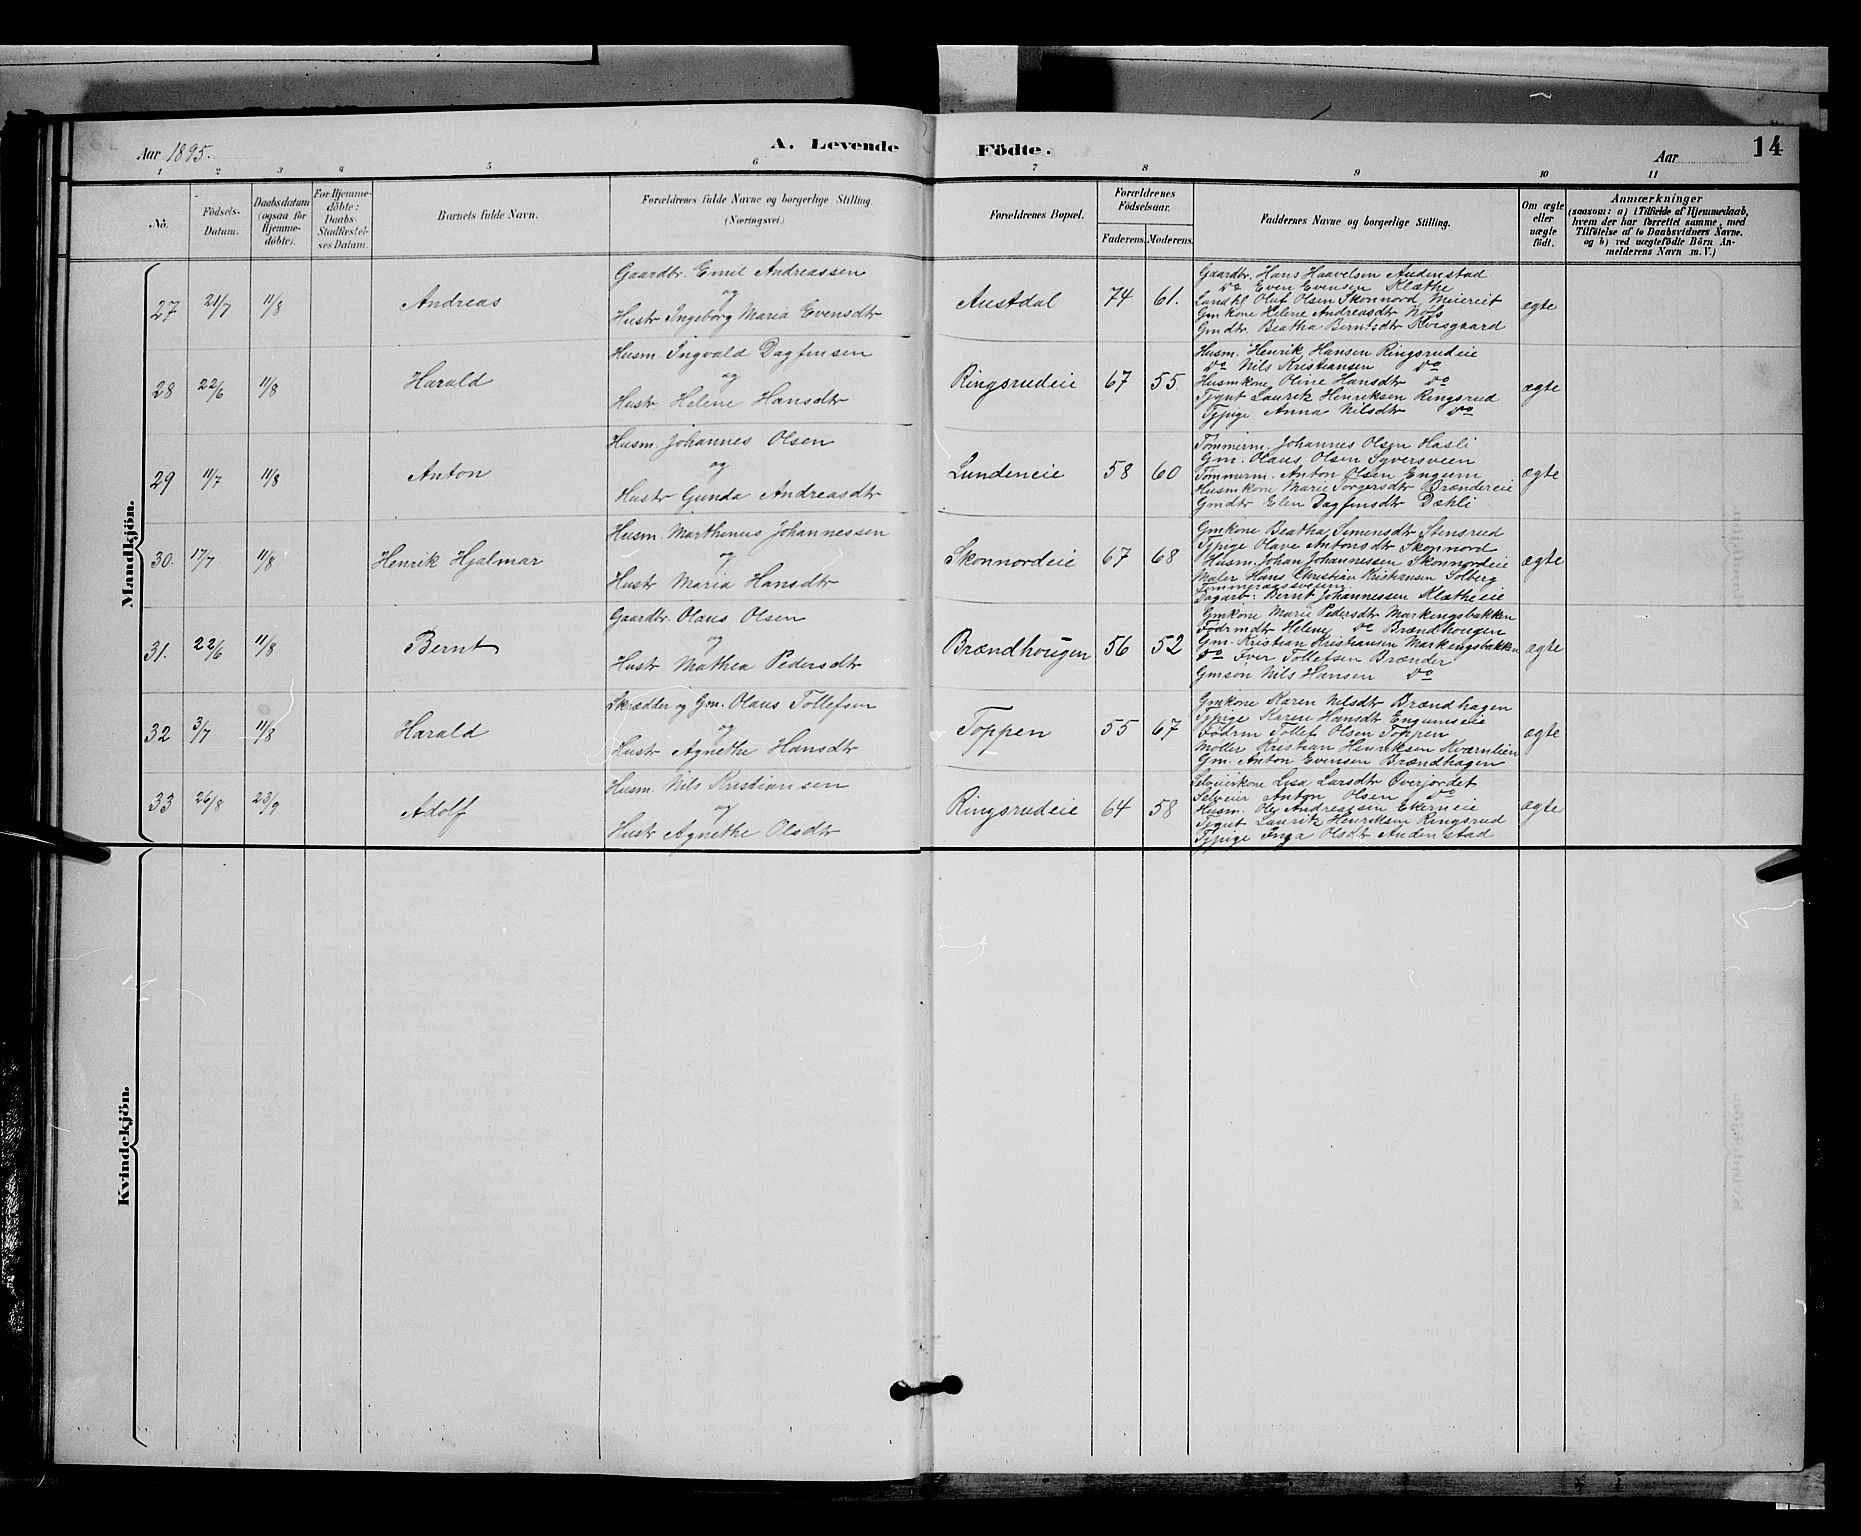 Aar 1895.
A. Levende
Födte.
Aar
14
1 2 3 4 5 6 7 8 9 10 11
No.
Födsels-Datum.
Daabsdatum (ogsaa for Hjemmedöbte).
For Hjemmedöbte: Daabs-Stadfæstelses Datum.
Barnets fulde Navn.
Forældrenes fulde Navne og borgerlige Stilling. (Næringsvei.)
Forældrenes Bopæl.
Forældrenes Födselsaar.
Faderens. Moderens.
Faddernes Navne og borgerlige Stilling.
Om ægte eller uægte födt.
Anmærkninger
(saasom: a) i Tilfælde af Hjemmedaab, hvem der har forrettet samme, med Tilföielse af to Daabsvidners Navne. og b) ved uægtefödte Börn Anmelderens Navn m. V.)
Mandkjön.
27 21/7 11/8 Andreas
Gaardbr. Emil Andreassen
og
Hustr Ingeborg Maria Evensdtr
Austdal 74 61.
Gaardbr. Hans Haavelsen Audenstad
Do Even Evensen Klæthe
Landhl. Oluf Olsen Skonnord Meieriet
Gmkone Helene Andreasdtr Nøss
Gmdtr. Beatha Berntsdtr
ægte
28 22/6 11/8 Harald
Husm. Ingvald Dagfinsen
og
Hustr. Helene Hansdtr
Ringsrudeie 67 55.
Husm. Henrik Hansen Ringsrudeie
Do Nils Kristiansen Do
Husmkone Oline Hansdtr Do
Tjgut Lauritz Henriksen Ringsrud
Tjpige Anna Nilsdtr Do
ægte
29 11/7 11/8 Anton
Husm. Johannes Olsen
og
Hustr Gunda Andreasdtr
Lundeneie 58 60
Tømmerm. Johannes Olsen Hasli
Gm. Olaus Olsen Syversveen
Tømmerm. Anton Olsen Engum
Husmkone Marie Torgersdtr Brændereie
Gmdtr Elen Dagfinsdtr Dæhli
ægte
30. 17/7 11/8 Henrik Hjalmar
Husm. Marthinus Johannessen
og
Hustr Maria Hansdtr
Skonnordeie 67 68
Gmkone Beatha Simensdtr Stensrud
Tjpige Olave Antonsdtr Skonnord
Husm. Johan Johannessen Skonnordeie
Maler Hans Christian Kristiansen Solberg
Dagarb: Bernt Johannessen Klætheeie
ægte
31. 22/6 11/8 Bernt
Gaardbr. Olaus Olsen
og
Hustr Mathea Pedersdtr
Brændhougen 56 52
Gmkone Marie Pedersdtr Markengsbakken
Födrmdtr Helene Do Brændhougen
Gm. Kristian Kristiansen Markengsbakken
Do Iver Tollefsen Brænder
Gmsøn Nils Hansen Do
ægte
32 3/7 11/8 Harald
Skrædder og Gm. Olaus Tollefsen
og
Hustr Agnethe Hansdtr
Toppen 55 67
Gmkone Karen Nilsdtr Brændhagen
Tjpige Karen Hansdtr Engumseie
Födrm Tollef Olsen Toppen
Møller Kristian Henriksen Kværnlien
Gm. Anton Evensen Brændhagen
ægte
33 26/8 23/9 Adolf
Husm. Nils Kristiansen
og
Hustr Agnethe Olsdtr
Ringsrudeie 64 58
Selveierkone Lisa Larsdtr Øverjordet
Selveier Anton Olsen Do
Husm. Ole Andreassen Ekerneie
Tjgut Lauritz Henriksen Ringsrud
Tjpige Inga Olsdtr Audenstad
ægte
Kvindekjön.